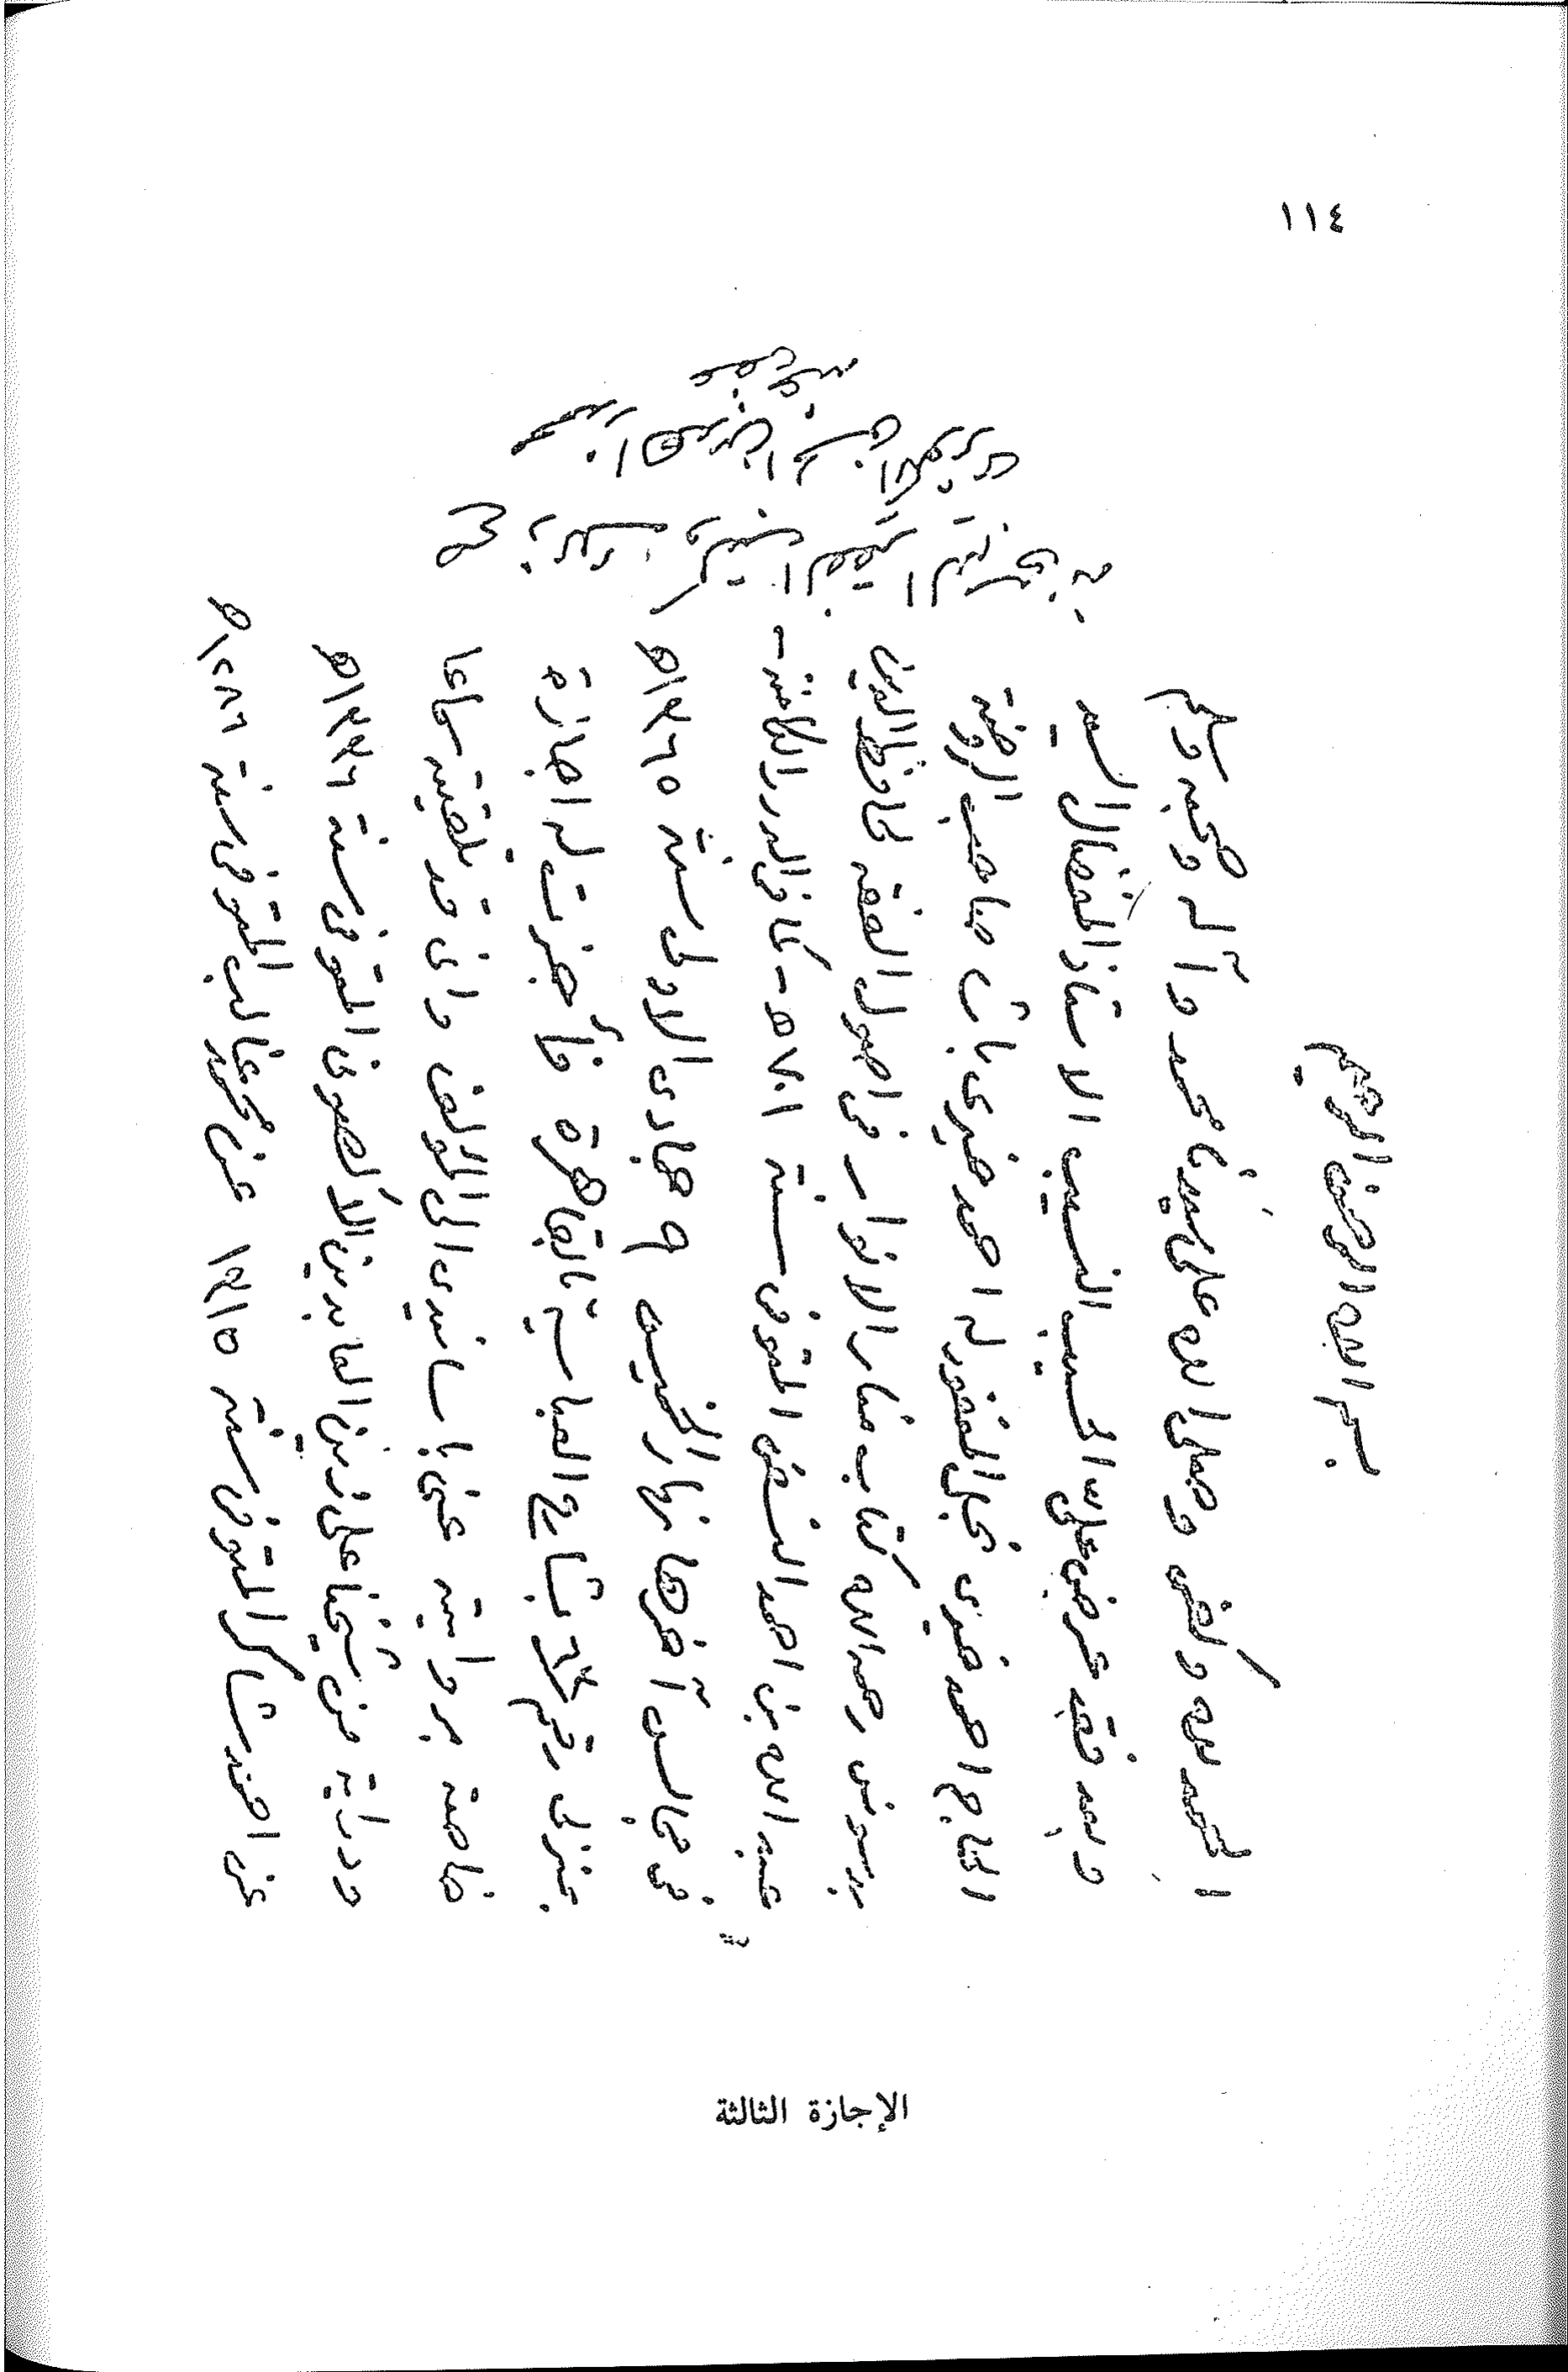 ١١٤
بسم الله الرحمن الرحيم
الحمد لله وكفى وصلى الله على سيدنا محمد وآله وصحبه وسلم
وبعد فقد عرض علىّ الحسيب النسيب الاستاذ المفضال السيد
الحاج احمد خيرى نجل المغفور له احمد خيرى باشا صاحب الروضة
ببسيونى رحمه الله كتاب منار الانوار فى اصول الفقه لحافظ الدين
عبد الله بن احمد النسفى المتوفى سنة ٧٠١ھ - كما فى الدرر الكامنة -
فى مجالس آخرها نهار الخميس ٩ جمادى الاولى سنة ١٣٦٥ھ
بمنزلى رقم ٦٣ بشارع العباسية بالقاهرة فأجزت له اجازة
خاصة بروايته عنى باسانيدى الى المؤلف وانى قد تلقيته سماعا
ودراية من شيخنا على زين العابدين الألصونى المتوفى سنة ١٣٣٦ھ
عن احمد شاكر المتوفى سنة ١٣١٥ عن محمد غالب المتوفى سنة ١٢٨٦ھ
محمد زاهد بن الحسن
عفى عنه
الإجازة الثالثة